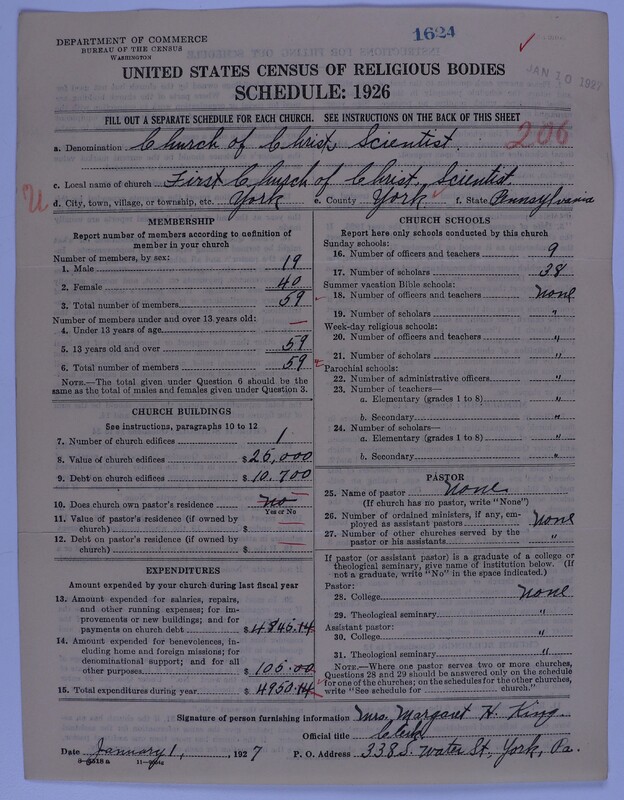 DEPARTMENT OF COMMERCE
BUREAU OF THE CENSUS
WASHINGTON
1624
JAN 10 1927
UNITED STATES CENSUS OF RELIGIOUS BODIES
SCHEDULE: 1926
FILL OUT A SEPARATE SCHEDULE FOR EACH CHURCH. SEE INSTRUCTIONS ON THE BACK OF THIS SHEET
a. Denomination Church of Christ, Scientist.
206
c. Local name of church First Church of Christ, Scientist
U
d. City, town, village, or township, etc. York e. County York f. State Pennsylvania
MEMBERSHIP
Report number of members according to definition of
member in your church
Number of members, by sex:
1. Male 19
2. Female 40
3. Total number of members 59
Number of members under and over 13 years old:
4. Under 13 years of age —
5. 13 years old and over 59
6. Total number of members 59
NOTE.—The total given under Question 6 should be
the same as the total of males and females given under Question 3.
CHURCH BUILDINGS
See instructions, paragraphs 10 to 12
7. Number of church edifices 1
8. Value of church edifices $ 26,000
9. Debt on church edifices $ 10,700
10. Does church own pastor's residence no
Yes or No
11. Value of pastor's residence (if owned by
church) $ —
12. Debt on pastor's residence (if owned by
church) $ —
EXPENDITURES
Amount expended by your church during last fiscal year
13. Amount expended for salaries, repairs,
and other running expenses; for im-
provements or new buildings; and for
payments on church debt $ 4845.14
14. Amount expended for benevolences, in-
cluding home and foreign missions; for
denominational support; and for all
other purposes $ 105.00
15. Total expenditures during year $ 4950.14
CHURCH SCHOOLS
Report here only schools conducted by this church
Sunday schools:
16. Number of officers and teachers 9
17. Number of scholars 38
Summer vacation Bible schools:
18. Number of officers and teachers none
19. Number of scholars "
Week-day religious schools:
20. Number of officers and teachers "
21. Number of scholars "
Parochial schools:
22. Number of administrative officers "
23. Number of teachers—
a. Elementary (grades 1 to 8) "
b. Secondary "
24. Number of scholars—
a. Elementary (grades 1 to 8) "
b. Secondary "
PASTOR
25. Name of pastor None
(If church has no pastor, write "None")
26. Number of ordained ministers, if any, em-
ployed as assistant pastors none
27. Number of other churches served by the
pastor or his assistants "
If pastor (or assistant pastor) is a graduate of a college or
theological seminary, give name of institution below. (If
not a graduate, write "No" in the space indicated.)
Pastor:
28. College none
29. Theological seminary "
Assistant pastor:
30. College "
31. Theological seminary "
NOTE.—Where one pastor serves two or more churches,
Questions 28 and 29 should be answered only on the schedule
for one of the churches; on the schedules for the other churches,
write "See schedule for church."
Signature of person furnishing information Mrs. Margaret H. King
Official title Clerk
Date January 1, 1927 P. O. Address 338 S. Water St., York, Pa.